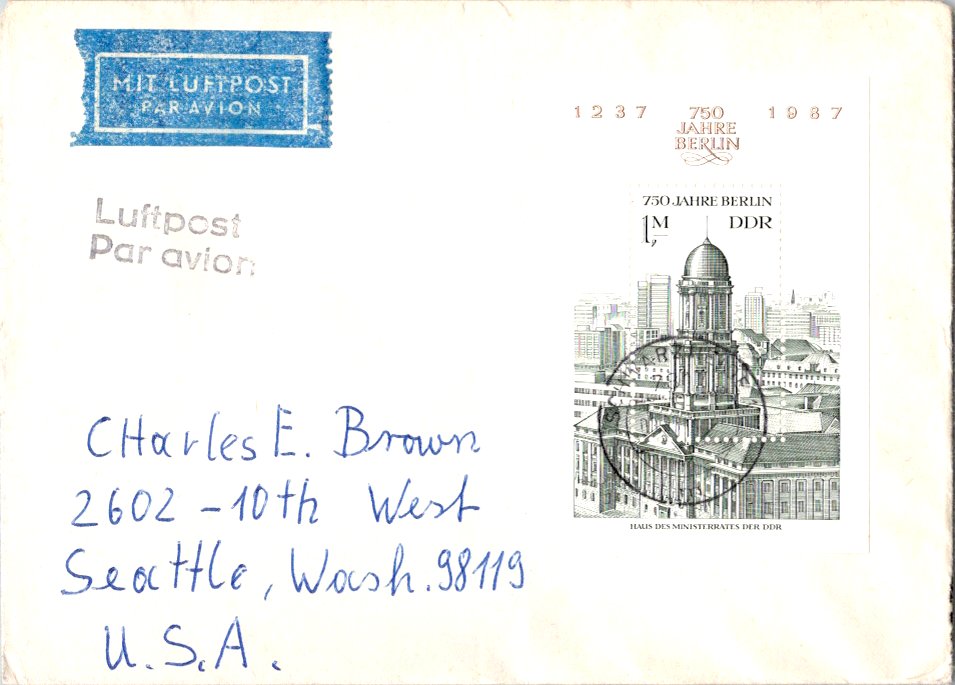 MIT LUFTPOST
PAR AVION
1237 750 1987
JAHRE
BERLIN
Luftpost
Par avion
750 JAHRE BERLIN
1,- M DDR
HAUS DES MINISTERRATES DER DDR
CHarles E. Brown
2602 - 10th West
Seattle, Wash. 98119
U.S.A.